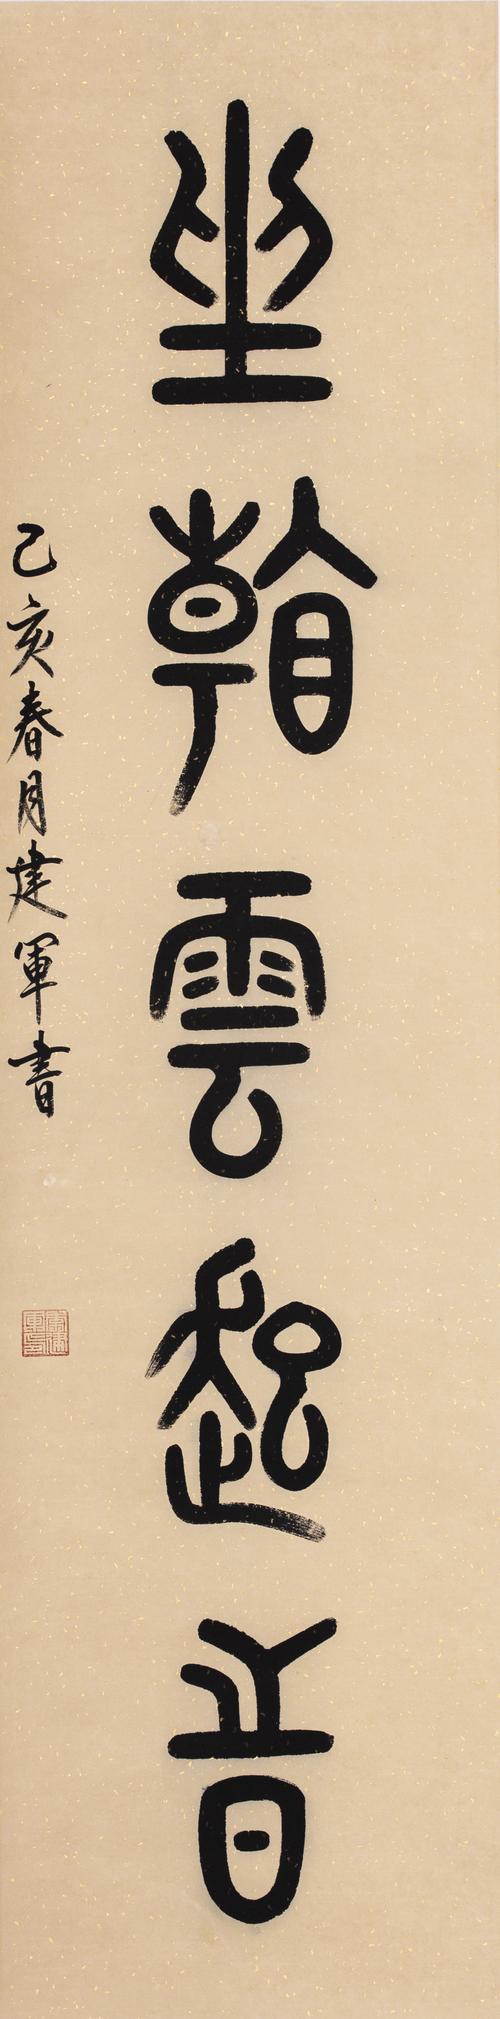 坐看雲起時
己亥春月建軍書